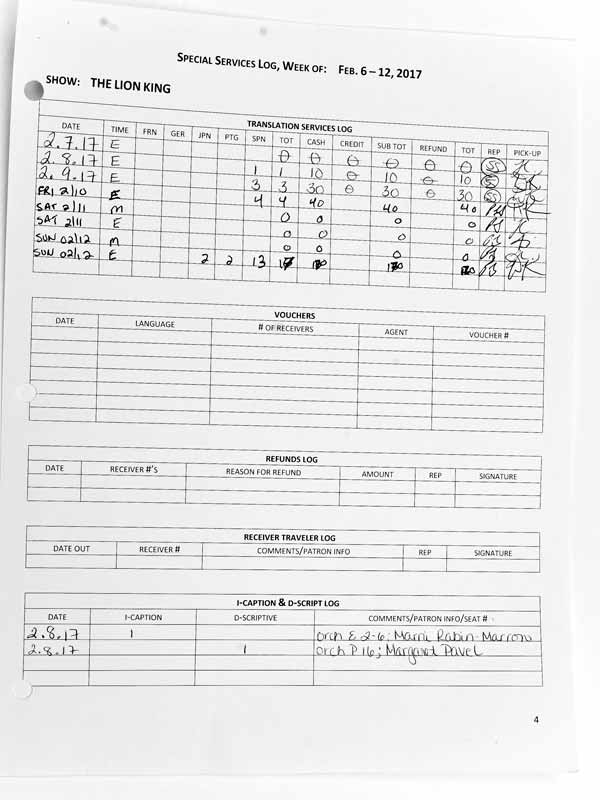 SPECIAL SERVICES LOG, WEEK OF: FEB. 6 – 12, 2017
SHOW: THE LION KING
TRANSLATION SERVICES LOG
DATE TIME FRN GER JPN PTG SPN TOT CASH CREDIT SUB TOT REFUND TOT REP PICK-UP
2.7.17 E 0 0 0 0 0 0 SS
2.8.17 E 1 1 10 0 10 0 10 SS
2.9.17 E 3 3 30 0 30 0 30 SS
FRI 2/10 E 4 4 40 40 40
SAT 2/11 M 0 0 0 0
SAT 2/11 E 0 0 0 0
SUN 02/12 M 0 0 0 0
SUN 02/12 E 2 2 13
VOUCHERS
DATE LANGUAGE # OF RECEIVERS AGENT VOUCHER #
REFUNDS LOG
DATE RECEIVER #'S REASON FOR REFUND AMOUNT REP SIGNATURE
RECEIVER TRAVELER LOG
DATE OUT RECEIVER # COMMENTS/PATRON INFO REP SIGNATURE
I-CAPTION & D-SCRIPT LOG
DATE I-CAPTION D-SCRIPTIVE COMMENTS/PATRON INFO/SEAT #
2.8.17 1 Orch E 2-6; Marni Rabin-Marron
2.8.17 1 Orch P 16; Margaret Pavel
4